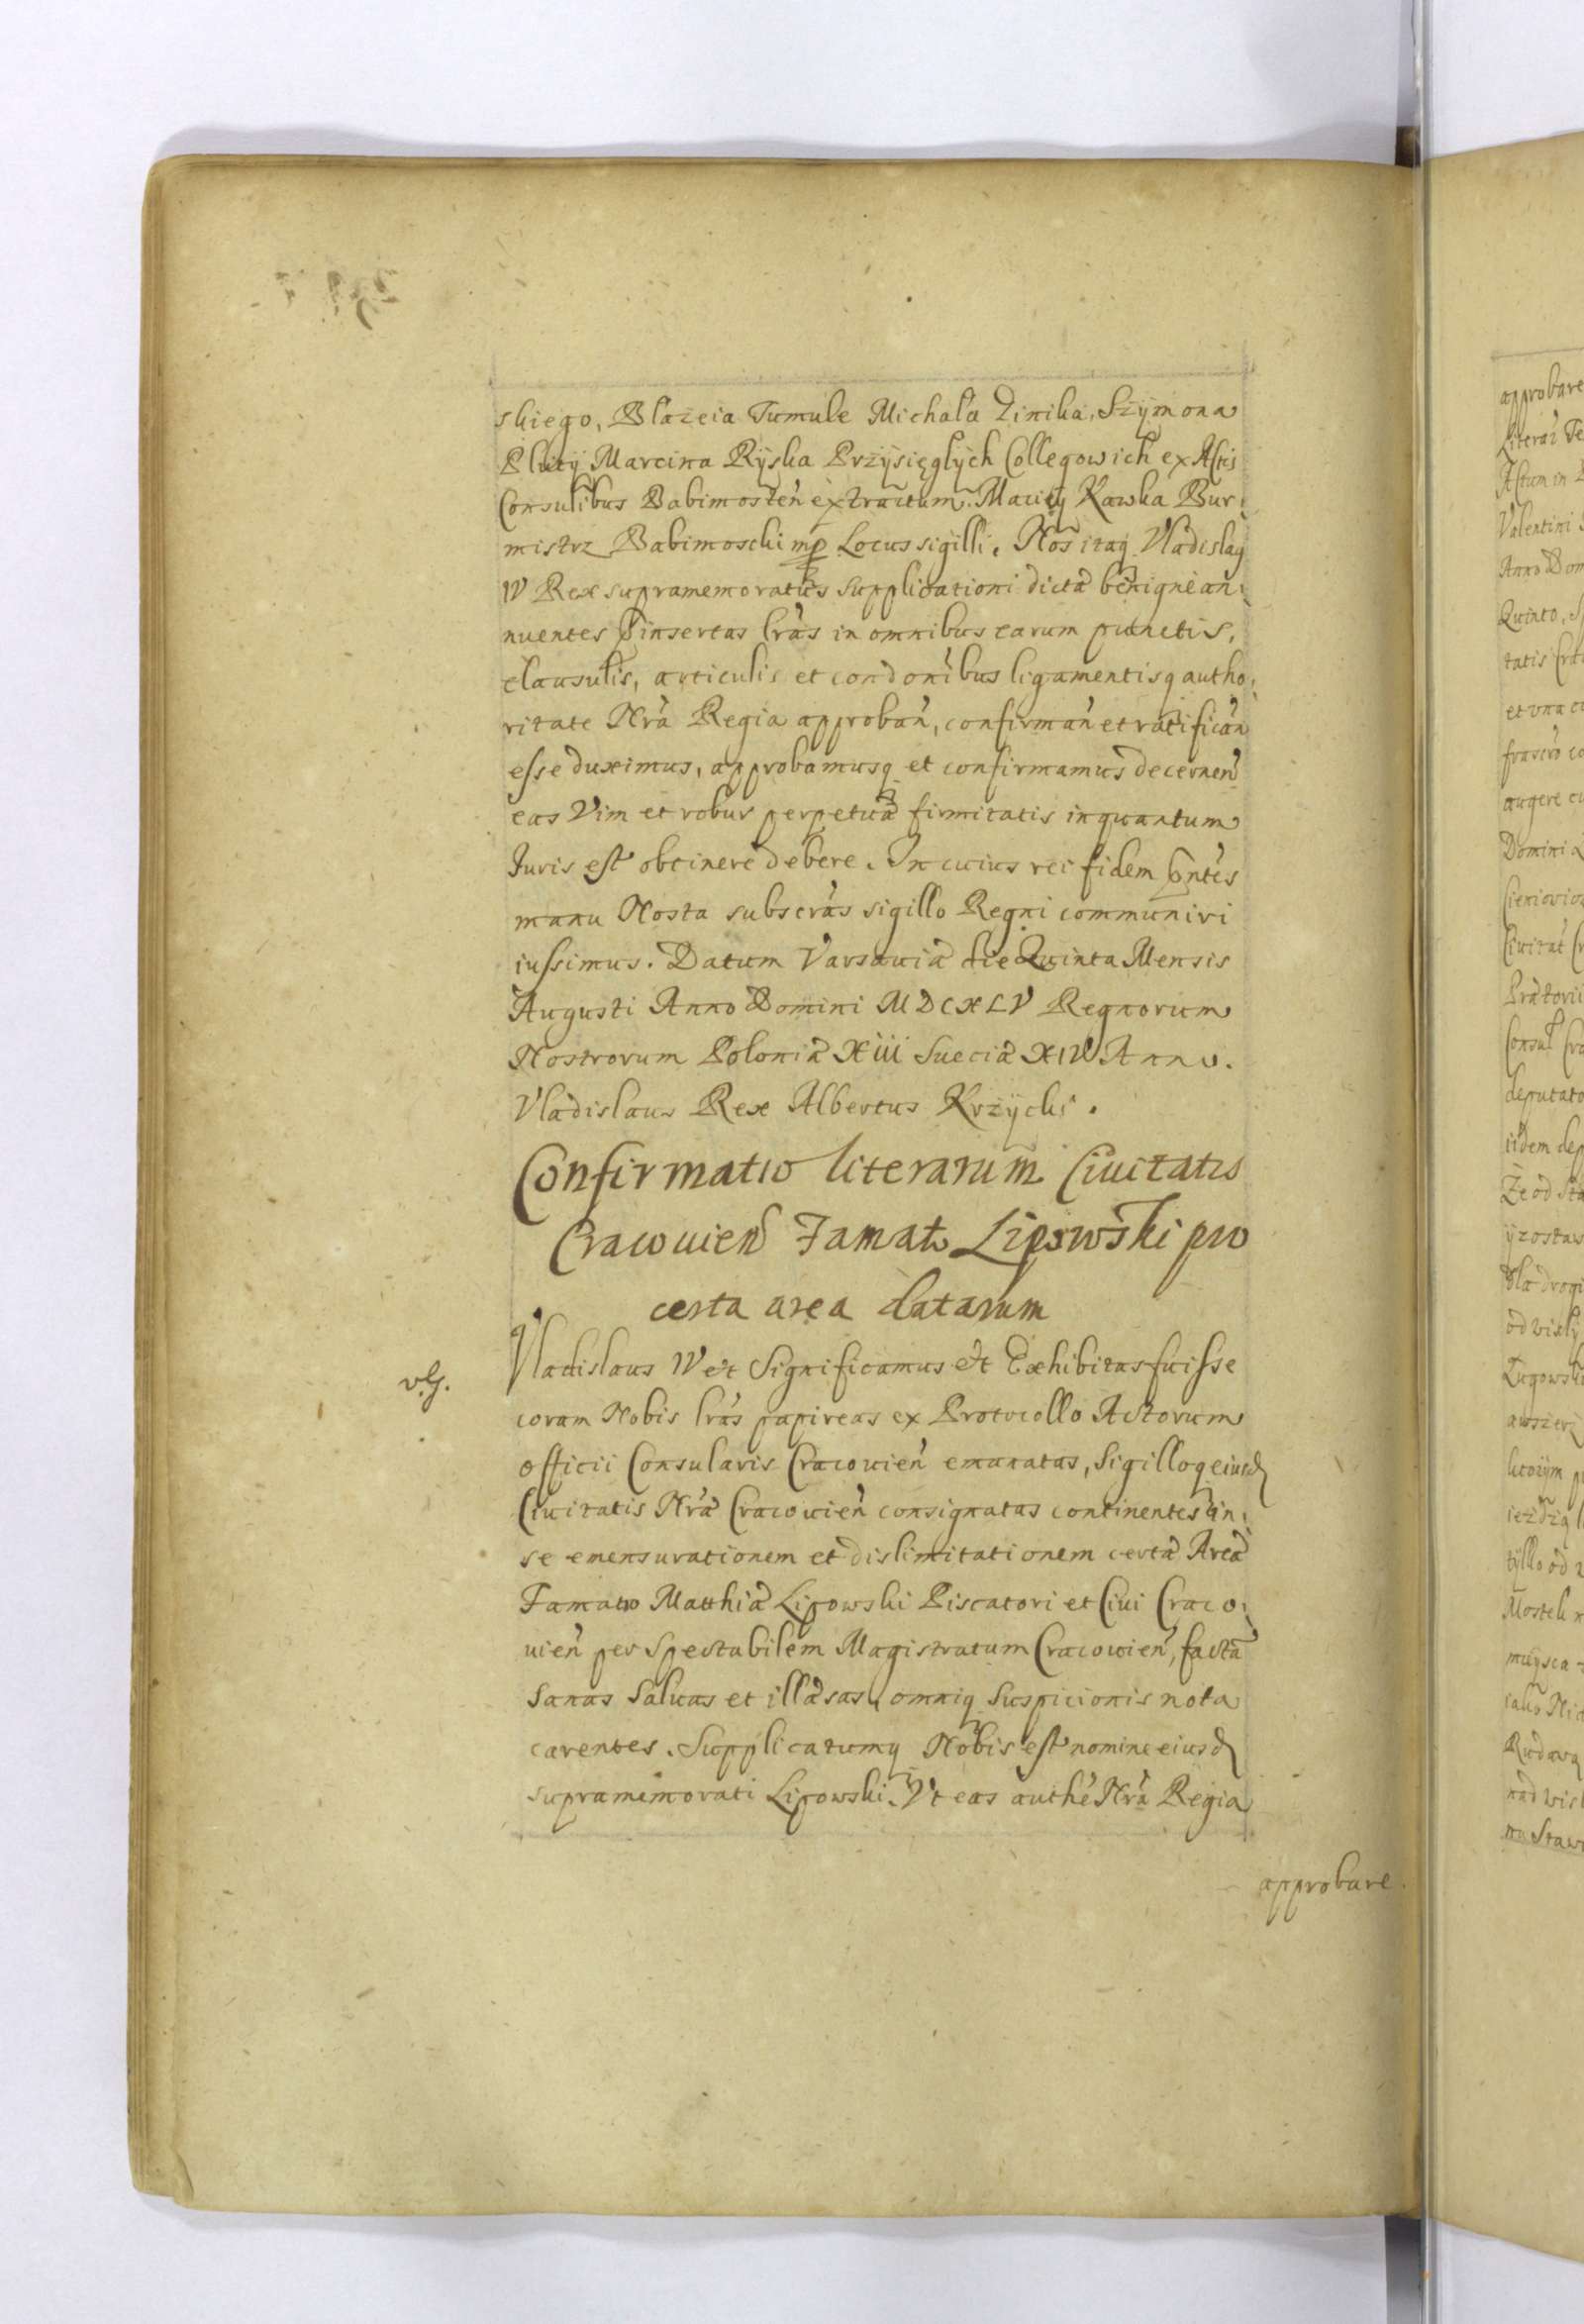 skiego, Błazeia Tumule Michała Zinika, Szÿmona
Plutÿ Marcina Rÿska Przÿsięgłÿch Collegowich ex Actis
Consulibus Babimosteń extractum. Maciej Kawka Bur:
mistrz Babimoscki mp Locus sigilli. Nos itaq Vladislaq
IV Rex supramemoratus supplicationi dictæ benignè an:
nuentes pinsertas lrás in omnibus earum punctis,
clausulis, articulis et condonibus ligamentisq autho:
ritate Nrá Regia approbań, confirmań et ratificań
esse duximus, approbamusq et confirmamus decerneń
eas Vim et robur perpetuæ firmitatis inquantum
Juris est obtinere debere. In cuius rei fidem pntes
manu Nosta subscrás sigillo Regni communiri
iussimus. Datum Varsauiæ die Quinta Mensis
Augusti Anno Domini MDCXLV Regnorum
Nostrorum Poloniæ Xiii Sueciæ XIV Anno.
Vladislaus Rex Albertus Krzÿcki.
Confirmatio literarum Ciuitatis
Cracouień Famato Lipowski pro
certa area datarum
Vladislaus IV et Significamus et Exhibitas fuisse
coram Nobis lrás papireas ex Protocollo Actorum
officii Consularis Cracouień emanatas, Sigilloq eiusd
Ciuitatis Nræ Cracouień consignatas continentes in:
se emensurationem et dislimitationem certæ Areæ
Famato Matthiæ Lipowski Piscatori et Ciui Craco:
uień per Spectabilem Magistratum Cracouień, factæ
Sanas Saluas et illæsas, omniq Suspicionis nota
carentes. Supplicatumq Nobis est nomine eiusd
supramemorati Lipowski. Vt eas authé Nrá Regia
approbare